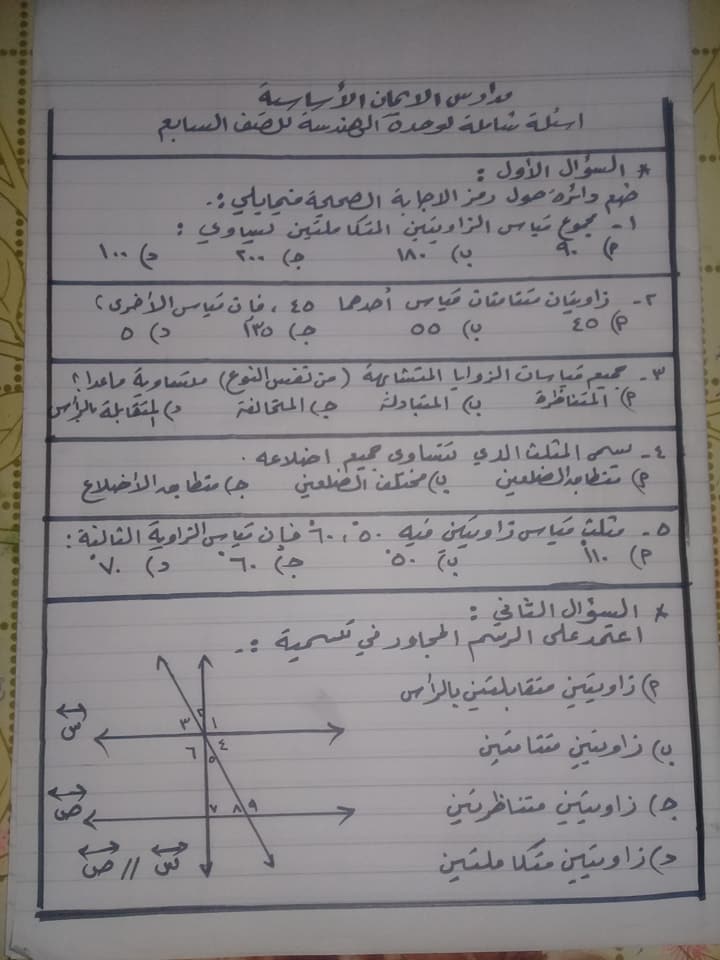 مدارس الايمان الأساسية
اسئلة شاملة لوحدة الهندسة للصف السابع
* السؤال الأول :
ضع دائرة حول رمز الاجابة الصحيحة فيمايلي :-
١- مجموع قياس الزاويتين المتكاملتين يساوي :
أ) ٩٠ ب) ١٨٠ جـ) ٢٠٠ د) ١٠٠
٢- زاويتان متتامتان قياس أحدهما ٤٥ ، فإن قياس الأخرى ؟
أ) ٤٥ ب) ٥٥ جـ) ١٣٥ د) ٥
٣- جميع قياسات الزوايا المتشابهة (من نفس النوع) متساوية ماعدا ؟
أ) المتناظرة ب) المتبادلة جـ) المتحالفة د) المتقابلة بالرأس
٤- يسمى المثلث الذي تتساوى جميع اضلاعه .
أ) متطابق الضلعين ب) مختلف الضلعين جـ) متطابق الأضلاع
٥- مثلث قياس زاويتين فيه ٥٠° ، ٦٠° فإن قياس الزاوية الثالثة :
أ) ١١٠° ب) ٥٠° جـ) ٦٠° د) ٧٠°
* السؤال الثاني :
اعتمد على الرسم المجاور في تسمية :-
أ) زاويتين متقابلتين بالرأس
ب) زاويتين متتامتين
جـ) زاويتين متناظرتين
د) زاويتين متكاملتين
س
ص
١ ٢ ٣
٤ ٥ ٦
٧ ٨ ٩
س // ص